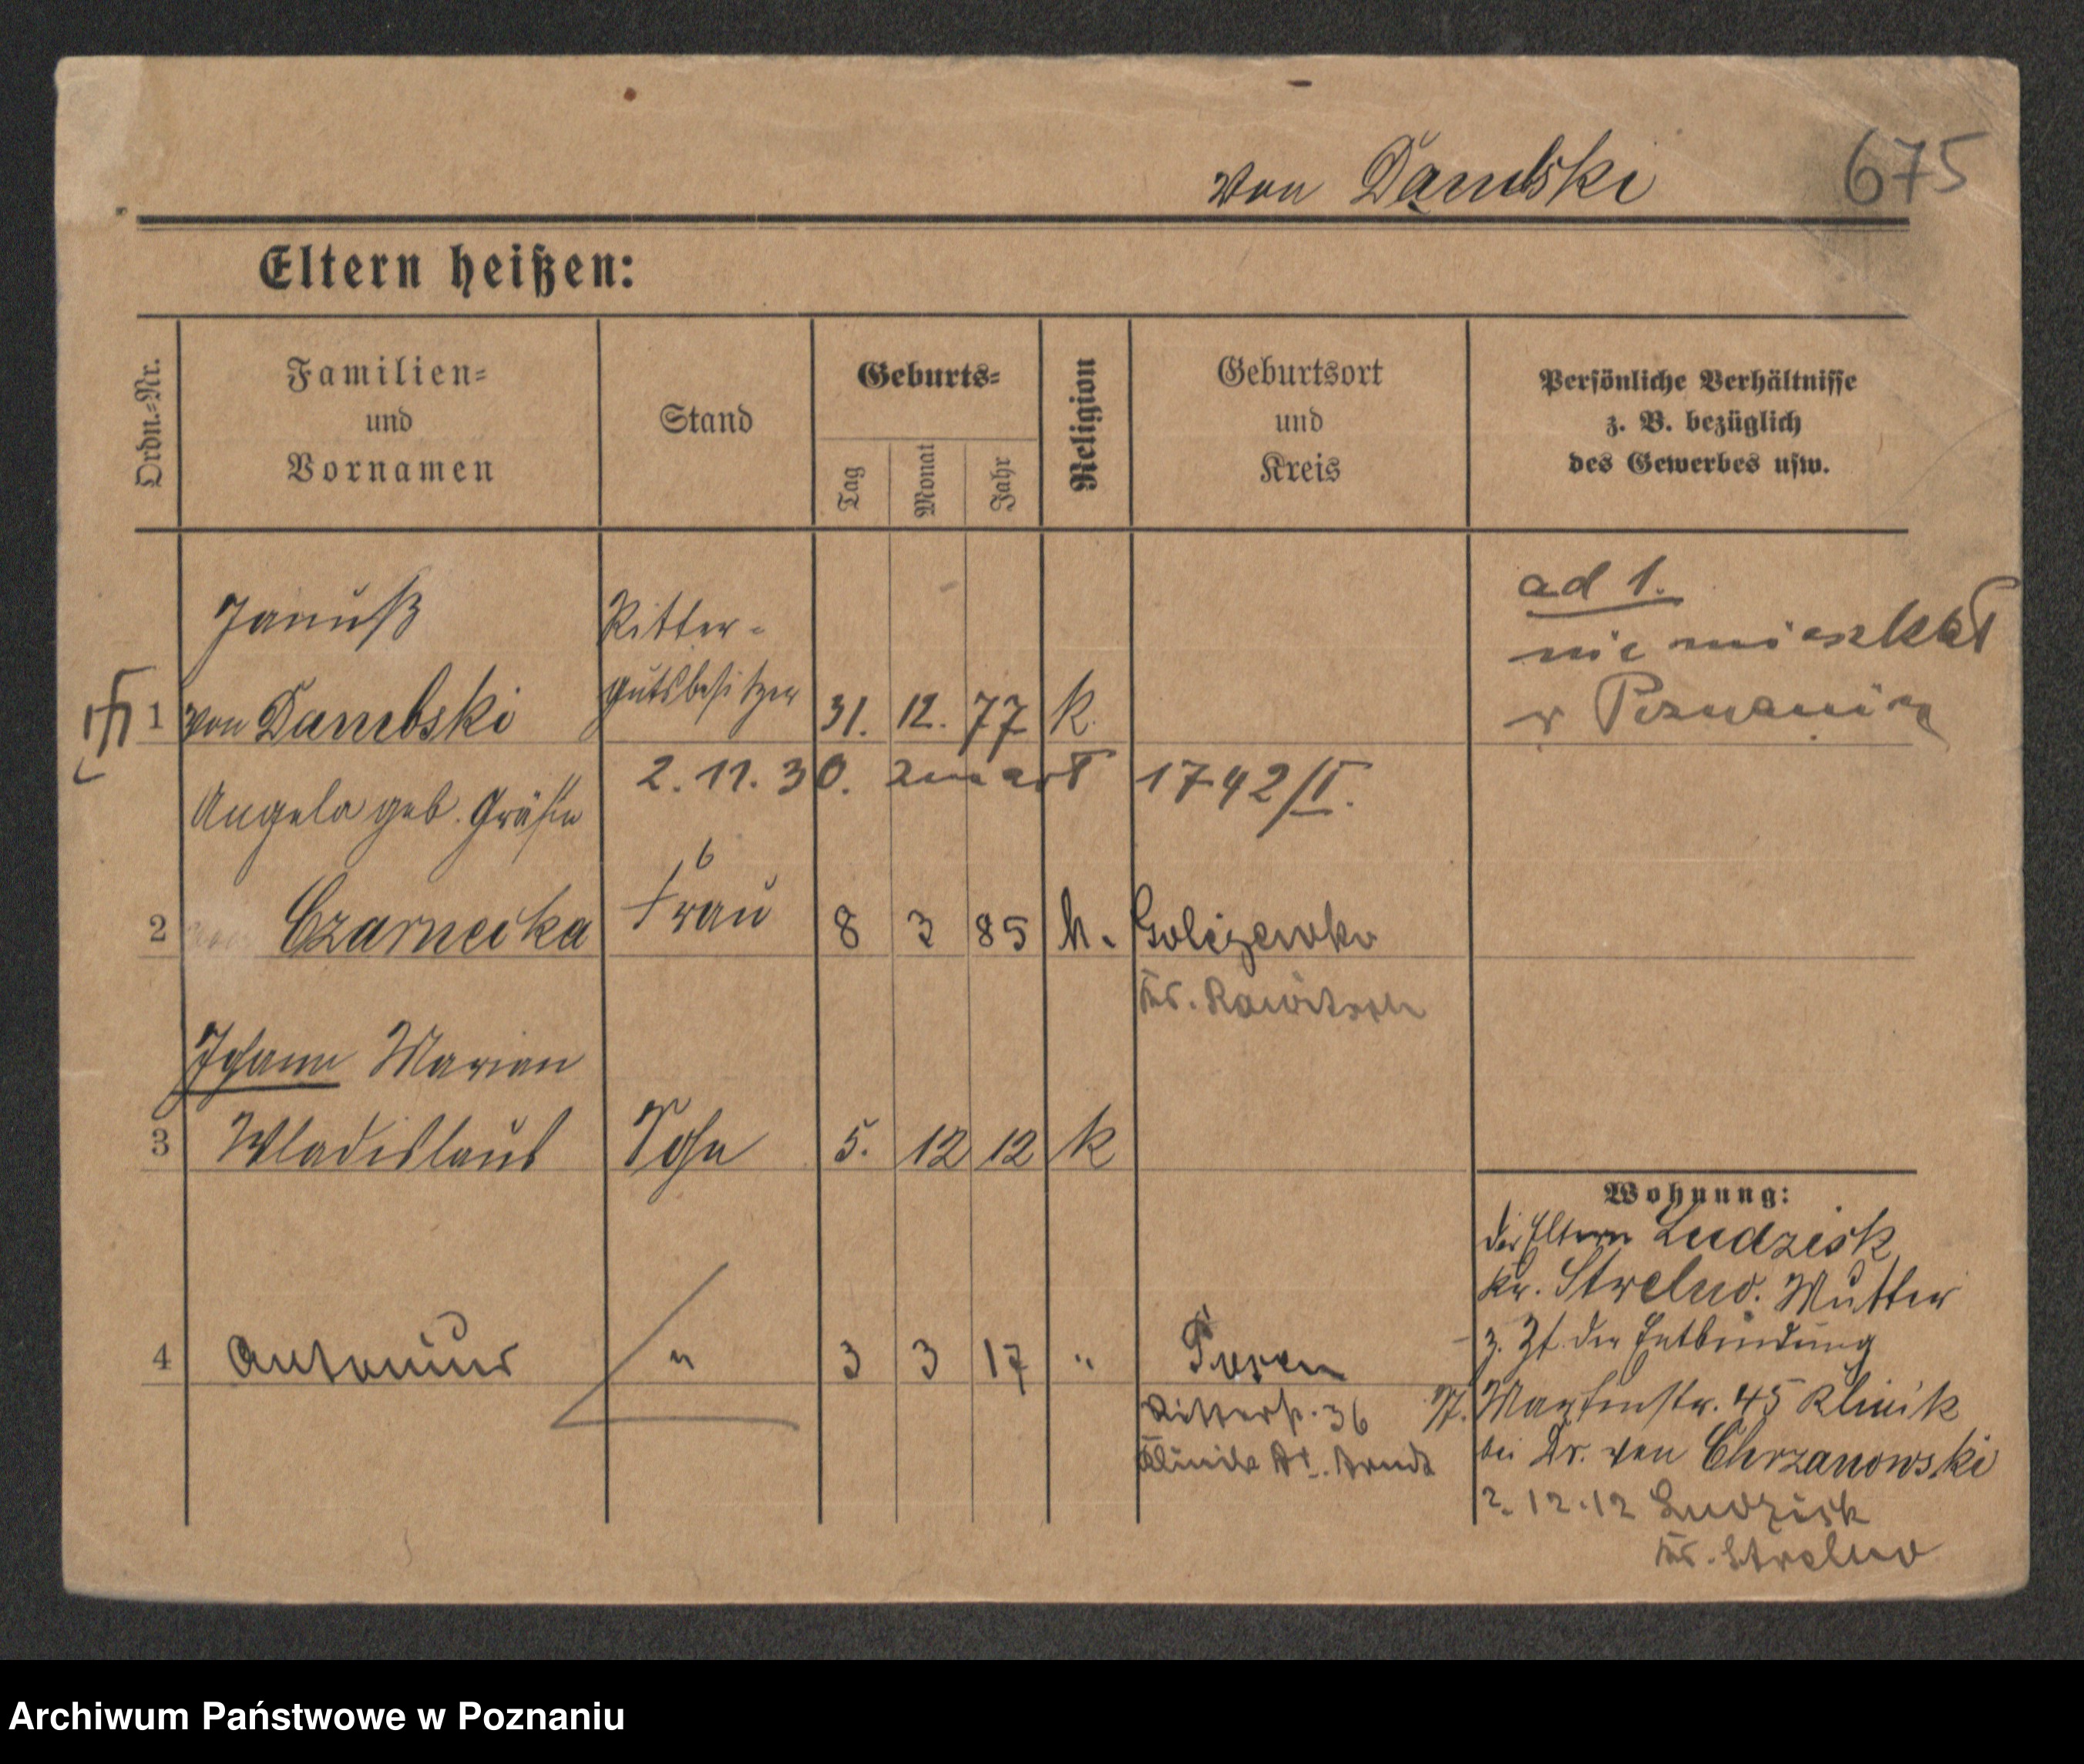 von Dambski 675
Eltern heißen:
Ordn.-Nr.
Familien-
und
Vornamen
Stand
Geburts-
Tag
Monat
Jahr
Religion
Geburtsort
und
Kreis
Persönliche Verhältnisse
z. B. bezüglich
des Gewerbes usw.
ad 1.
nie mieszkał
w Poznaniu
Januß Ritter-
1 von Dambski gutsbesitzer 31. 12. 77 k.
2.11.30. zmarł 1742/II.
Angela geb. Gräfin
2 Czarnecka Frau 8 3 85 k. Golejewko
6
Kr. Rawitsch
Johann Marian
3 Wladislaus Sohn 5. 12 12 k
4 Antonius " 3 3 17 " Posen
Ritterstr. 36
Klinik Dr.
Wohnung:
der Eltern Ludzisk
Kr. Strelno. Mutter
z. Zt. der Entbindung
St. Martinstr. 45 Klinik
bei Dr. von Chrzanowski
2.12.12 Ludzisk
Kr. Strelno
Archiwum Państwowe w Poznaniu